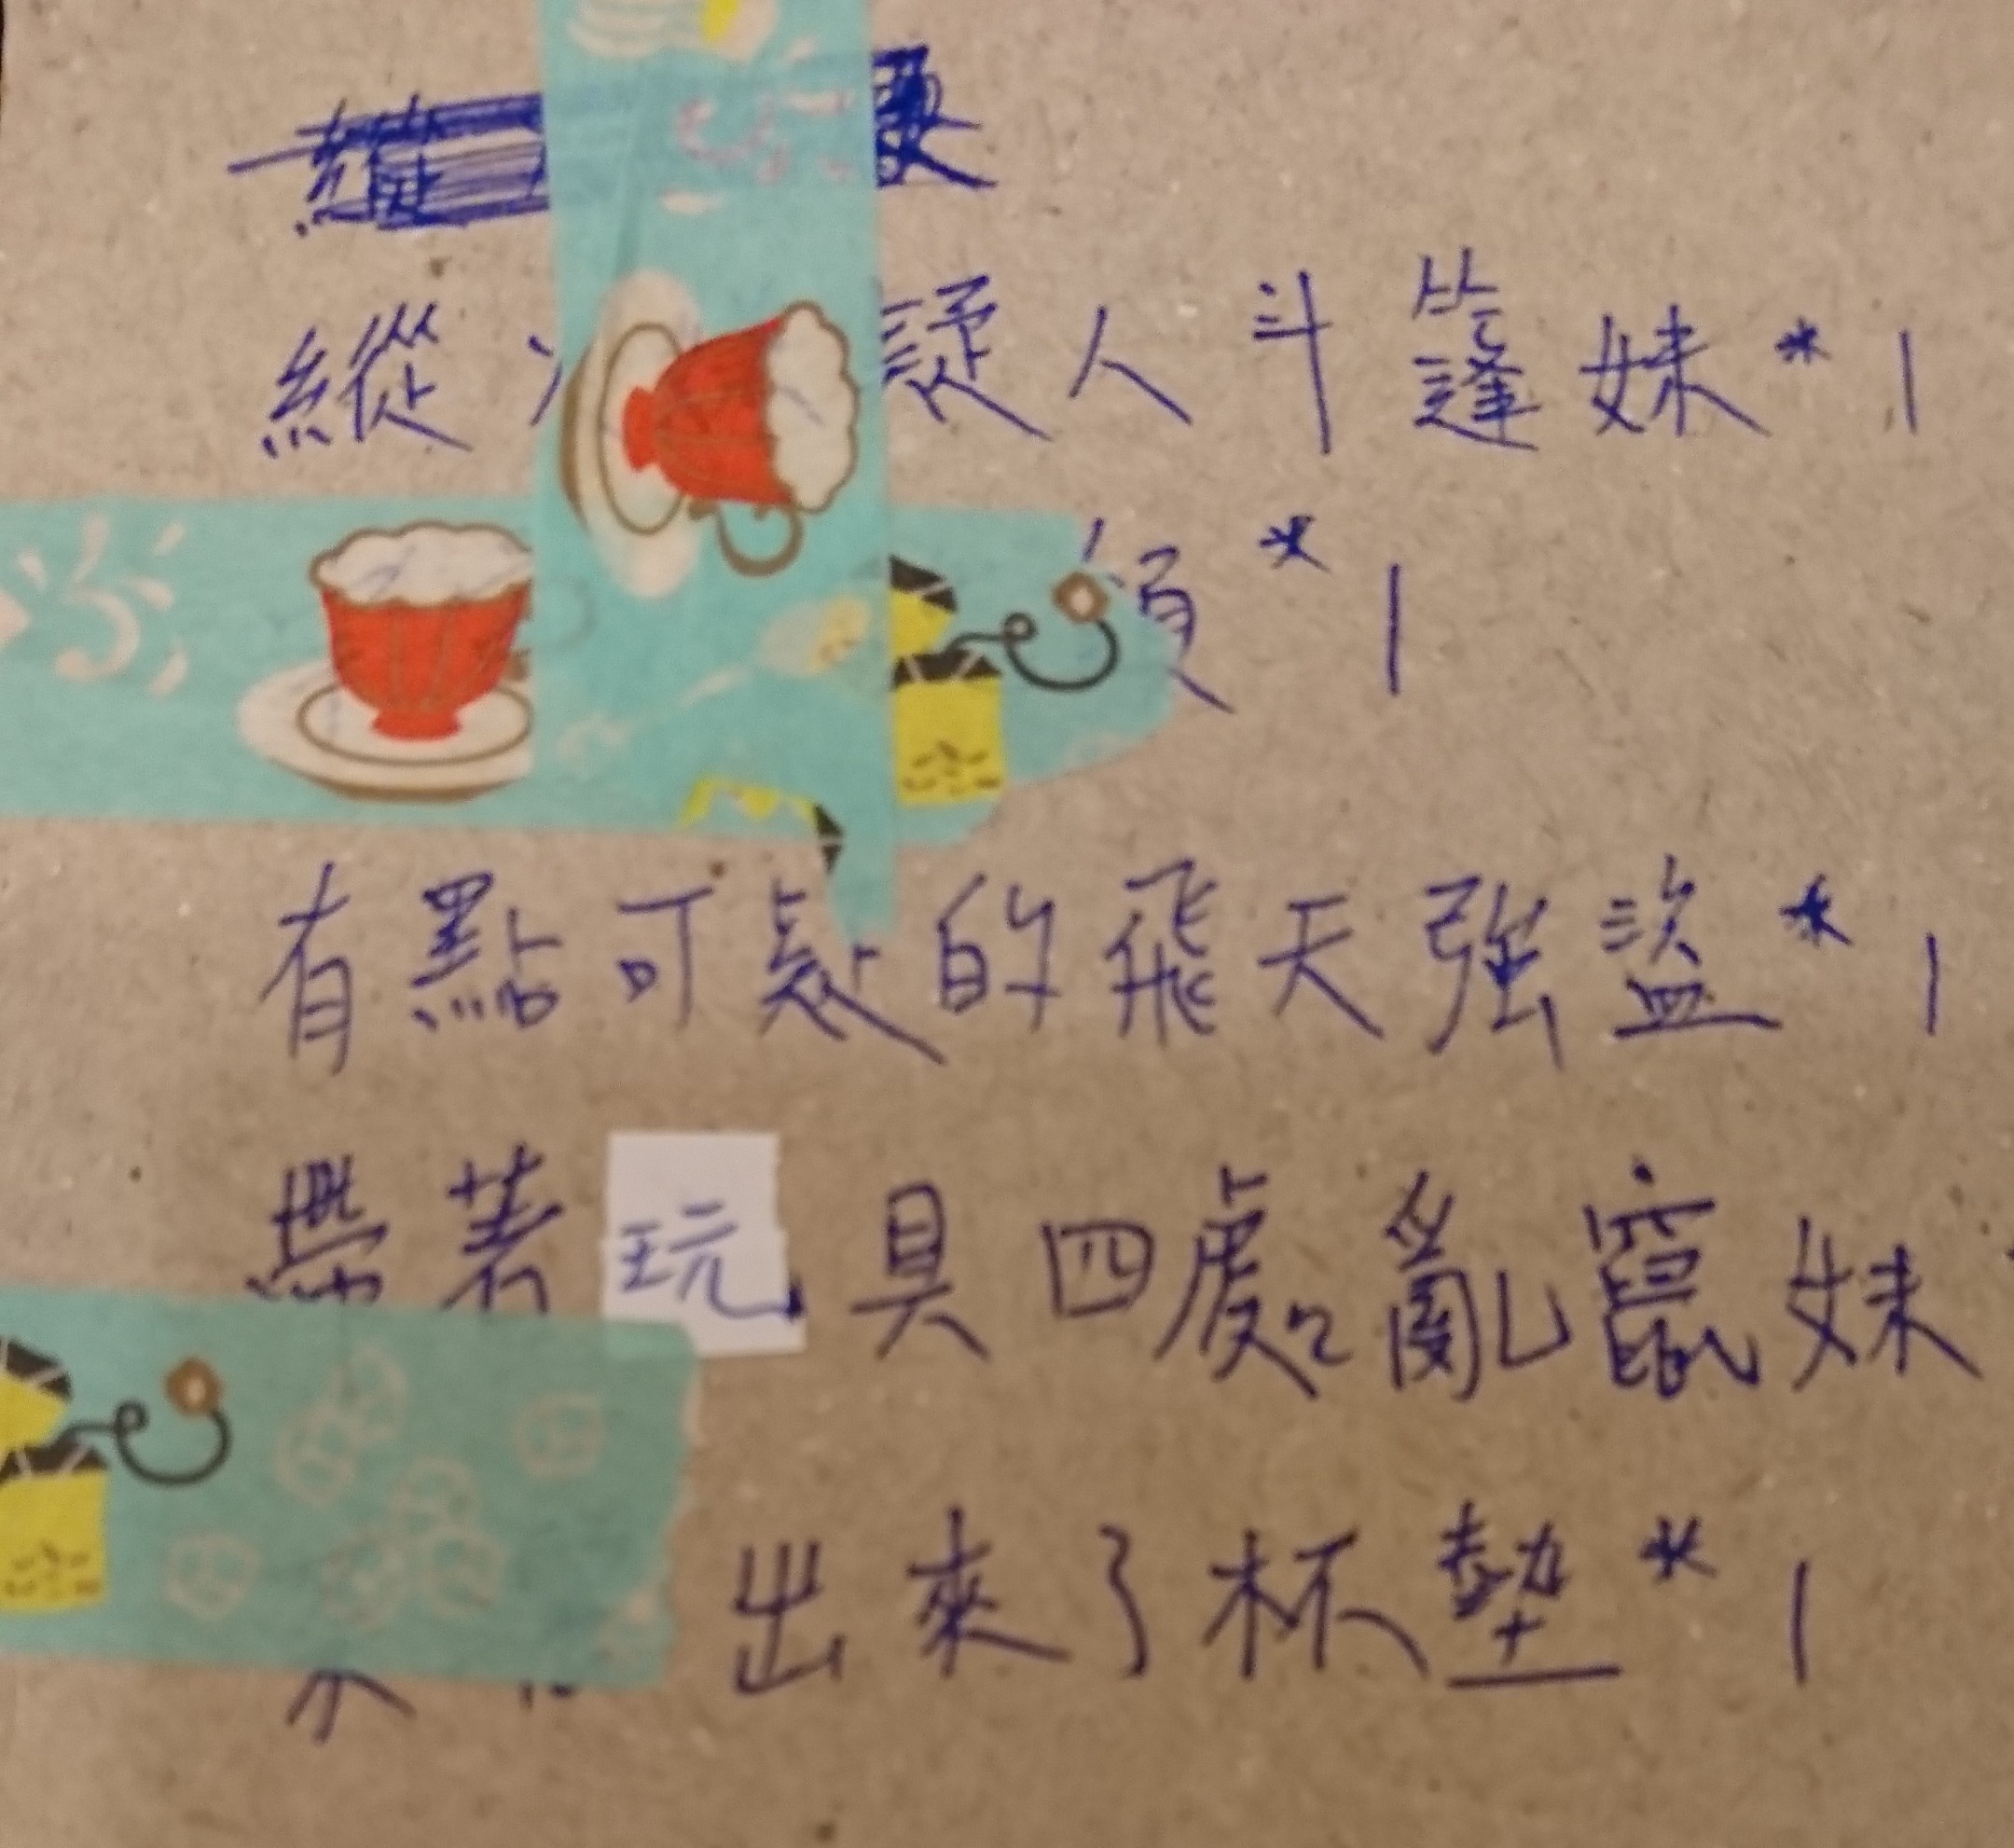 縱 人斗篷妹*1
*1
有點可疑的飛天強盜*1
帶著玩具四處亂竄妹
出來了杯墊*1